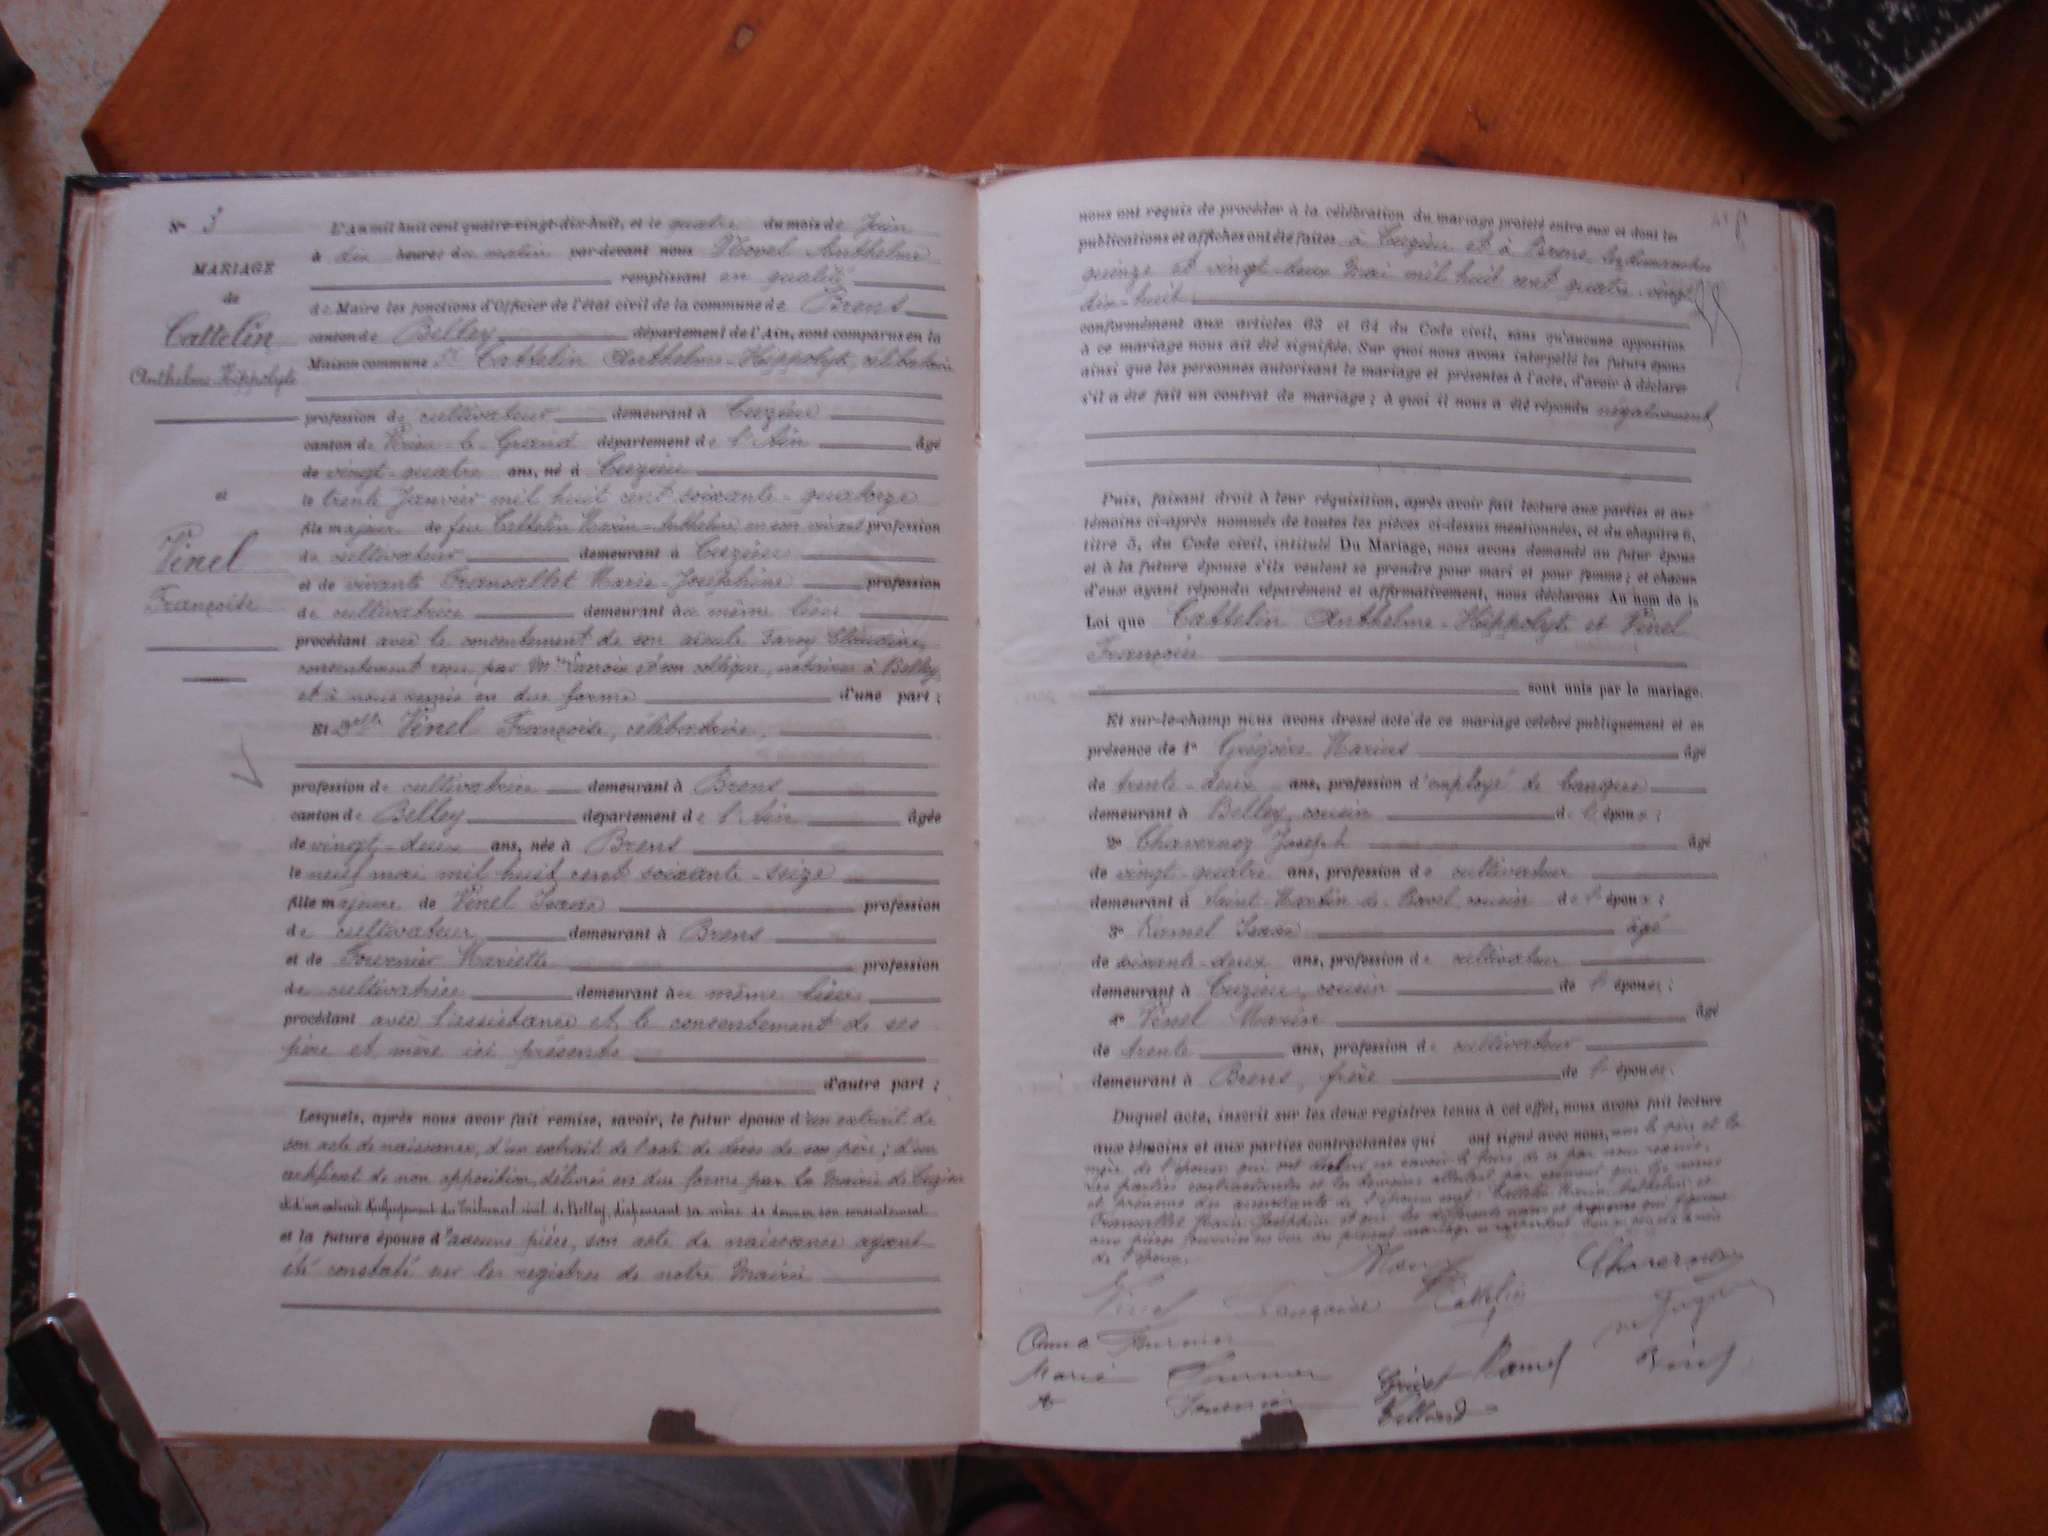 N° 3
MARIAGE
de
Cattelin
Anthelme-Hippolyte
et
Vinel
Françoise
L'An mil huit cent quatre-vingt-dix-huit, et le quatre du mois de Juin
à dix heures du matin par-devant nous Movel Anthelme
remplissant en qualité
de Maire les fonctions d'Officier de l'état civil de la commune de Brens
canton de Belley département de l'Ain, sont comparus en la
Maison commune Sr Cattelin Anthelme-Hippolyte, célibataire
profession de cultivateur demeurant à Cuzieu
canton de Virieu-le-Grand département de l'Ain âgé
de vingt-quatre ans, né à Cuzieu
le trente Janvier mil huit cent soixante-quatorze
fils majeur de feu Cattelin Marin-Anthelme en son vivant profession
de cultivateur demeurant à Cuzieu
et de vivante Francallet Marie-Joséphine profession
de cultivatrice demeurant au même lieu
procédant avec le consentement de son aïeule Claudine,
consentement reçu par Me Lacroix et son collègue, notaires à Belley
et à nous remis en due forme d'une part ;
Et Delle Vinel Françoise, célibataire,
profession de cultivatrice demeurant à Brens
canton de Belley département de l'Ain âgée
de vingt-deux ans, née à Brens
le neuf mai mil huit cent soixante-seize
fille majeure de Vinel Isaac profession
de cultivateur demeurant à Brens
et de Fournier Mariette profession
de cultivatrice demeurant au même lieu
procédant avec l'assistance et le consentement de ses
père et mère ici présents
d'autre part ;
Lesquels, après nous avoir fait remise, savoir, le futur époux d'un extrait de
son acte de naissance, d'un extrait de l'acte de décès de son père ; d'un
certificat de non opposition, délivrés en due forme par la Mairie de Cuzieu
et d'un extrait du jugement du Tribunal civil de Belley, dispensant sa mère de donner son consentement
et la future épouse d'aucune pièce, son acte de naissance ayant
été constaté sur les registres de notre Mairie
nous ont requis de procéder à la célébration du mariage projeté entre eux et dont les
publications et affiches ont été faites à Cuzieu et à Brens les dimanches
quinze et vingt-deux Mai mil huit cent quatre-vingt
dix-huit
conformément aux articles 63 et 64 du Code civil, sans qu'aucune opposition
à ce mariage nous ait été signifiée. Sur quoi nous avons interpellé les futurs époux
ainsi que les personnes autorisant le mariage et présentes à l'acte, d'avoir à déclarer
s'il a été fait un contrat de mariage ; à quoi il nous a été répondu négativement
Puis, faisant droit à leur réquisition, après avoir fait lecture aux parties et aux
témoins ci-après nommés de toutes les pièces ci-dessus mentionnées, et du chapitre 6,
titre 5, du Code civil, intitulé Du Mariage, nous avons demandé au futur époux
et à la future épouse s'ils veulent se prendre pour mari et pour femme ; et chacun
d'eux ayant répondu séparément et affirmativement, nous déclarons Au nom de la
Loi que Cattelin Anthelme-Hippolyte et Vinel
Françoise
sont unis par le mariage.
Et sur-le-champ nous avons dressé acte de ce mariage célébré publiquement et en
présence de 1° Grégoire Marius âgé
de trente-deux ans, profession d'employé de banque
demeurant à Belley, cousin de l'époux ;
2° Chavernoz Joseph âgé
de vingt-quatre ans, profession de cultivateur
demeurant à Saint-Martin-de-Bavel, cousin de l'époux ;
3° Ramel Isaac âgé
de soixante-deux ans, profession de cultivateur
demeurant à Cuzieu, cousin de l'époux ;
4° Vinel Marin âgé
de trente ans, profession de cultivateur
demeurant à Brens, frère de l'épouse.
Duquel acte, inscrit sur les deux registres tenus à cet effet, nous avons fait lecture
aux témoins et aux parties contractantes qui ont signé avec nous, non le père et la
mère de l'épouse qui ont déclaré ne savoir le faire de ce par nous requis.
Les parties contractantes et les témoins attestent par serment que les noms
et prénoms des ascendants de l'époux sont : Cattelin Marin-Anthelme et
Francallet Marie-Joséphine et que les différents noms et prénoms qui figurent
aux pièces
de l'époux.
Chavernoz
Vinel Françoise Cattelin
Anna Fournier
Marie Fournier Ramel Vinel
A Fournier